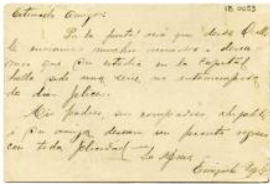 18.0053
Estimado Amigo:
Por la presente será que desde Calle
le enviamos muchos recuerdos i desea-
mos que su estadia en la capital
halla sido una serie no interrumpida
de dias felices.
Mis padres, sus compadres, chiquilla
i su amiga desean un pronto regreso
con toda felicidad